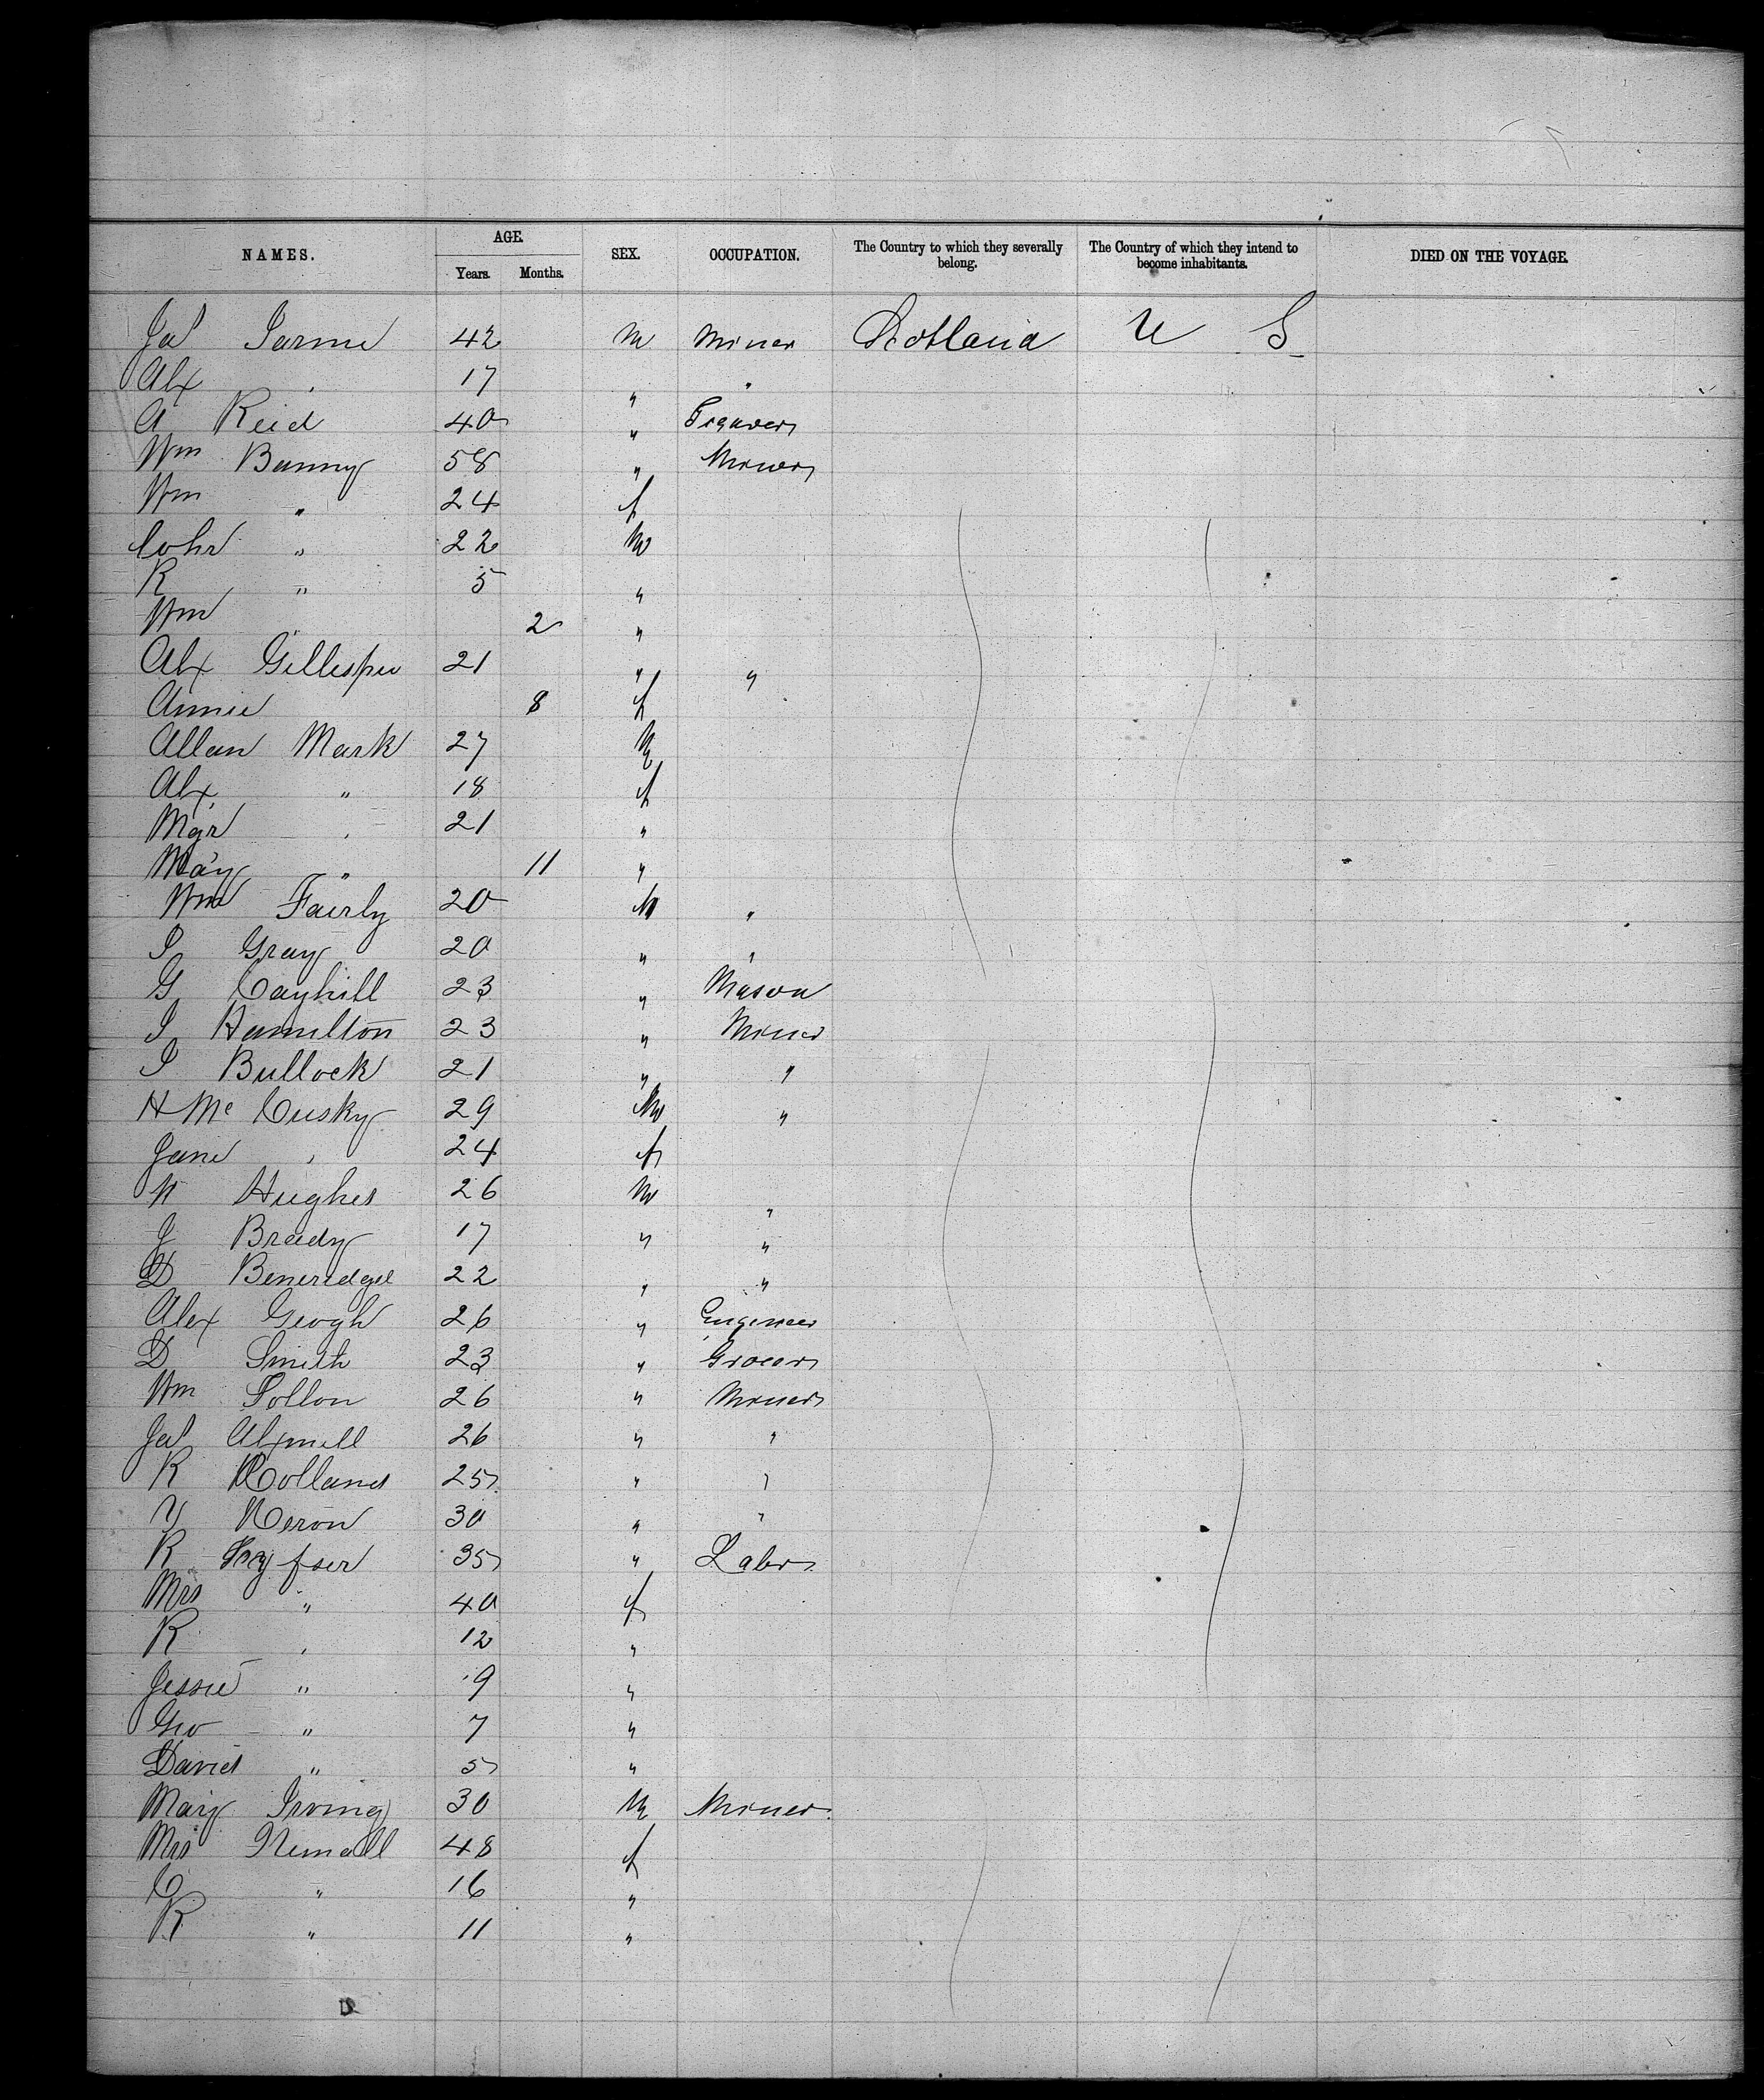 NAMES. AGE. Years. Months. SEX. OCCUPATION. The Country to which they severally belong. The Country of which they intend to become inhabitants. DIED ON THE VOYAGE.
Jas 42 M Miner Scotland U S
Alx " 17 " "
A Reid 40 "
Wm Bunny 58 " Miner
Wm " 24 f
John " 22 M
R " 5 "
Wm " 2 "
Alx Gillespie 21 " "
Annie 8 f
Allan Mark 27 M
Alx " 18 f
Mgr " 21 "
May " 11 "
Wm Fairly 20 M "
J Gray 20 " "
G Cayhill 23 " Mason
J Hamilton 23 " Miner
J Bullock 21 " "
H Mc Cusky 29 M "
Jane " 24 f
W Hughes 26 M "
J Brady 17 " "
D Beneridge 22 " "
Alex Geogh 26 " Engineer
D Smith 23 " Grocer
Wm Tollon 26 " Miner
Jas 26 " "
R Holland 25 " "
Y Heron 30 " "
R 35 " Labr
Mrs " 40 f
R " 12 "
Jessie " 9 "
Geo " 7 "
David " 5 "
Mary Irving 30 M Miner
Mrs 48 f
C " 16 "
R " 11 "